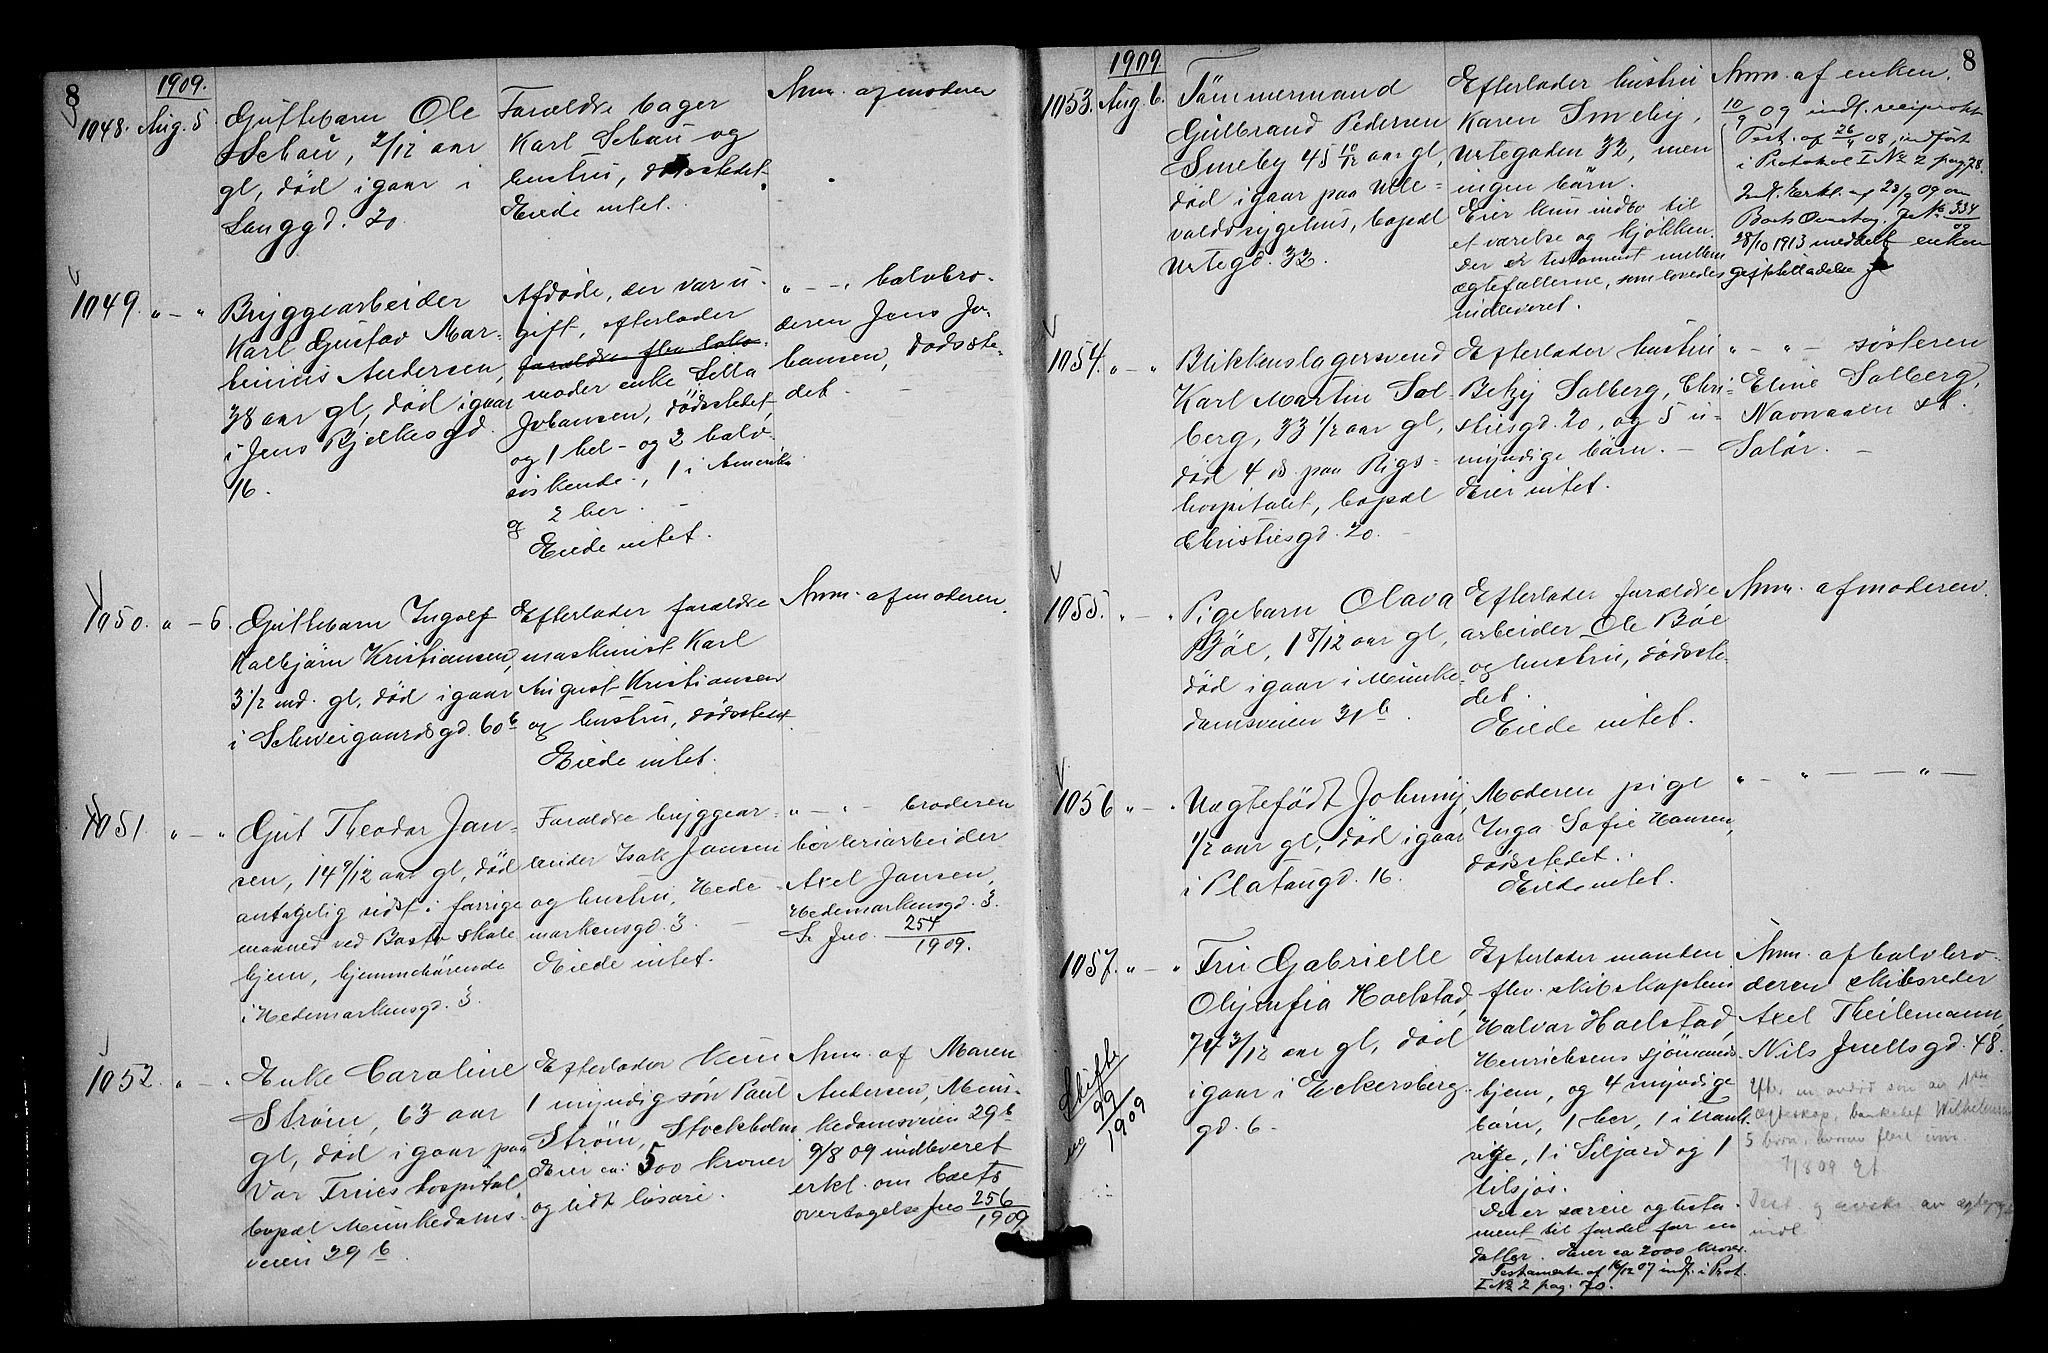 8
1909.
1048. Aug. 5.
Guttebarn Ole
Schau, 2/12 aar
gl, död igaar i
Langgd. 20.
Forældre bager
Karl Schau og
hustru, dödsstedet.
Eiede intet.
Anm. af moderen
1049. " — "
Bryggearbeider
Karl Gustav Mar-
tinius Andersen,
38 aar gl, död igaar
i Jens Bjelkesgd.
16.
Afdöde, der var u-
gift, efterlader
moder enke
Johansen, dödsstedet,
og 1 hel- og 3 halv-
söskende, 1 i Amerika
og 2 her. —
Eiede intet.
" — " halvbro-
deren Jens Jo-
hansen, dödsste-
det. —
1050. " — 6.
Guttebarn Ingolf
Kolbjörn Kristiansen,
3 1/2 md. gl, död igaar
i Schweigaardsgd. 60 b
Efterlader forældre
maskinist Karl
August Kristiansen
og hustru, dödsstedet.
Eiede intet.
Anm. af moderen.
1051. " — "
Gut Theodor Jan-
sen, 14 9/12 aar gl, död
antagelig sidst i forrige
maaned ved Bastö skole
hjem, hjemmehörende
i Hedemarkensgd. 3.
Forældre bryggear-
beider Isak Jansen
og hustru, Hede-
markensgd. 3. —
Eiede intet.
" — " — broderen
börsteriarbeider
Axel Jansen,
Hedemarkensgd. 3.
Se Jno. 254/1909.
1052. " — "
Enke Caroline
Ström, 63 aar
gl, död igaar paa
Vor Frues hospital,
bopæl Munkedams-
veien 29 b.
Efterlader kun
1 myndig sön Paul
Ström, Stockholm
Eier ca: 500 kroner
og lidt lösöre.
Anm. af Maren
Andersen, Mun-
kedamsveien 29 b
9/8 09 indleveret
erkl. om boets
overtagelse Jno 256/1909
8
1909.
1053. Aug. 6.
Tömmermand
Gulbrand Pedersen
Smeby 45 10/12 aar gl,
död igaar paa Ulle-
vaalds sygehus, bopæl
Urtegd. 32.
Efterlader hustru
Karen Smeby,
Urtegaden 32, men
ingen börn.
Eier kun indbo til
et værelse og kjökken.
Der er testament mellem
ægtefællerne, som lovedes
indleveret.
Anm. af enken.
10/9 09 indl. reciprokt
Test. af 26/11 08, indfört
i Protokol I No 2 pag 78.
Indl. Erkl. af 23/9 09 om
Boets Overtag. Jr No 334/09
28/10 1913 meddelt enken
giftetilladelse
1054. " — "
Blikkenslagersvend
Karl Martin Sol-
berg, 33 1/2 aar gl,
död 4 ds. paa Rigs-
hospitalet, bopæl
Christiesgd. 20. —
Efterlader hustru
Betzy Solberg, Chri-
stiesgd. 20, og 5 u-
myndige börn. —
Eier intet.
" — " — sösteren
Eline Solberg,
Navnaaen st.
Solör. —
1055. " — "
Pigebarn Olava
Böe, 1 8/12 aar gl,
död igaar i Munke-
damsveien 31 b.
Efterlader forældre
arbeider Ole Böe
og hustru, dödsste-
det.
Eiede intet.
Anm. af moderen.
1056 " — "
Uægtefödt Johnny,
1/2 aar gl, död igaar
i Platougd. 16.
Moderen pige
Inga Sofie Hansen,
dödsstedet.
Eiede intet.
" — " — — " —
1057. " — "
Skifte
99/1909
Fru Gabrielle
Olymfia Hoelstad,
74 3/12 aar gl, död
igaar i Eckersberg-
gd. 6 -
Efterlader manden
fhv. skibskaptein
Halvor Hoelstad,
Henrichsens sjömands-
hjem, og 4 myndige
börn, 1 her, 1 i Frank-
rige, 1 i Siljord og 1
tilsjös.
Der er særeie og testa-
ment til fordel for en
datter. Eier ca 2000 kroner.
Testamente af 16/12 07 indf. i Prot.
I No 2 pag. 70.
Anm. af halvbro-
deren skibsreder
Axel Theilemann,
Nils Juelsgd. 48.
5 börn, hvoraf flere um.
7/8 09
indl.